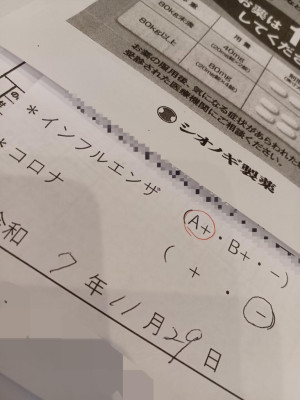 お薬は1
してくだ
用量
80kg未満
40mg
(20mg錠×2錠)
80kg以上
80mg
(20mg錠×4錠)
お薬の服用後、気になる症状があらわれた
受診された医療機関にご相談ください。
シオノギ製薬
*インフルエンザ (A+・B+・-)
*コロナ ( + ・ -
令和 7年11月29日